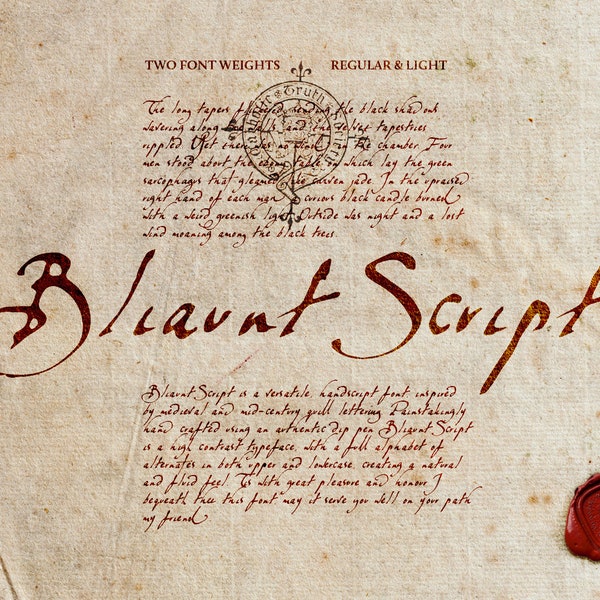 TWO FONT WEIGHTS REGULAR & LIGHT
The long tapers flickered, sending the black shadows
wavering along the walls, and the velvet tapestries
rippled. Yet there was no wind in the chamber. Four
men stood about the ebony table on which lay the green
sarcophagus that gleamed like carven jade. In the upraised
right hand of each man a curious black candle burned
with a weird greenish light. Outside was night and a lost
wind moaning among the black trees.
Truth
Bliaunt Script
Bliaunt Script is a versatile, handscript font, inspired
by medieval and mid-century quill lettering. Painstakingly
hand crafted using an authentic dip pen Bliaunt Script
is a high contrast typeface, with a full alphabet of
alternates in both upper and lowercase, creating a natural
and fluid feel. Tis with great pleasure and honour I
bequeath thee this font may it serve you well on your path
my friend.